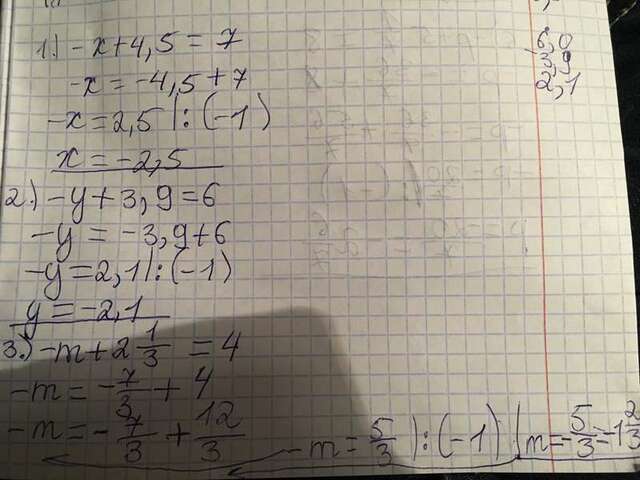 1.) -x+4,5 = 7
-x = -4,5 + 7
-x = 2,5 |: (-1)
x = -2,5
2.) -y + 3,9 = 6
-y = -3,9+6
-y = 2,1 |: (-1)
y = -2,1
3.) -m + 2 1/3 = 4
-m = -7/3 + 4
-m = -7/3 + 12/3
-m = 5/3 ) : (-1) | m = -5/3 = -1 2/3
6,0
3,9
2,1